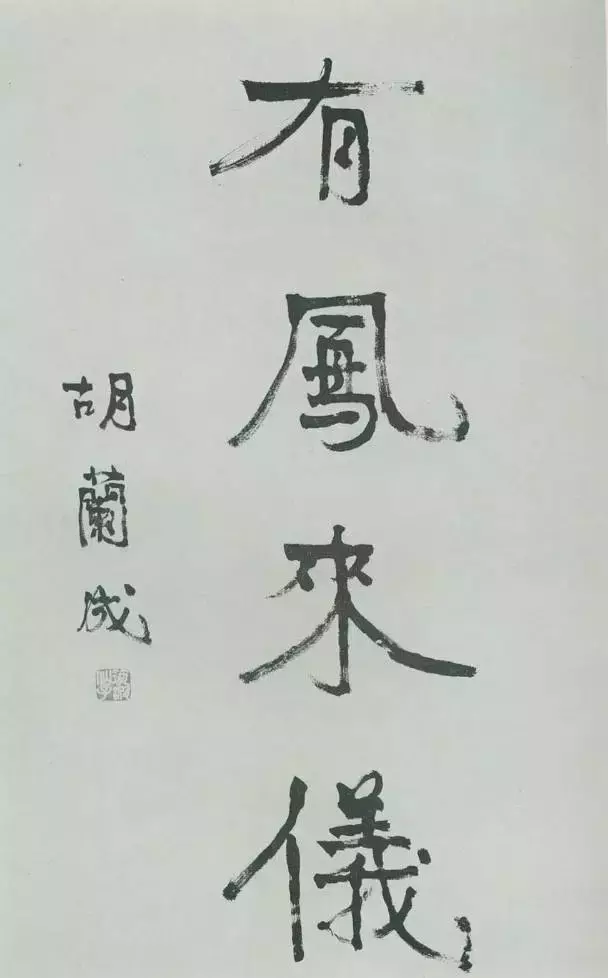 有鳳來儀
胡蘭成